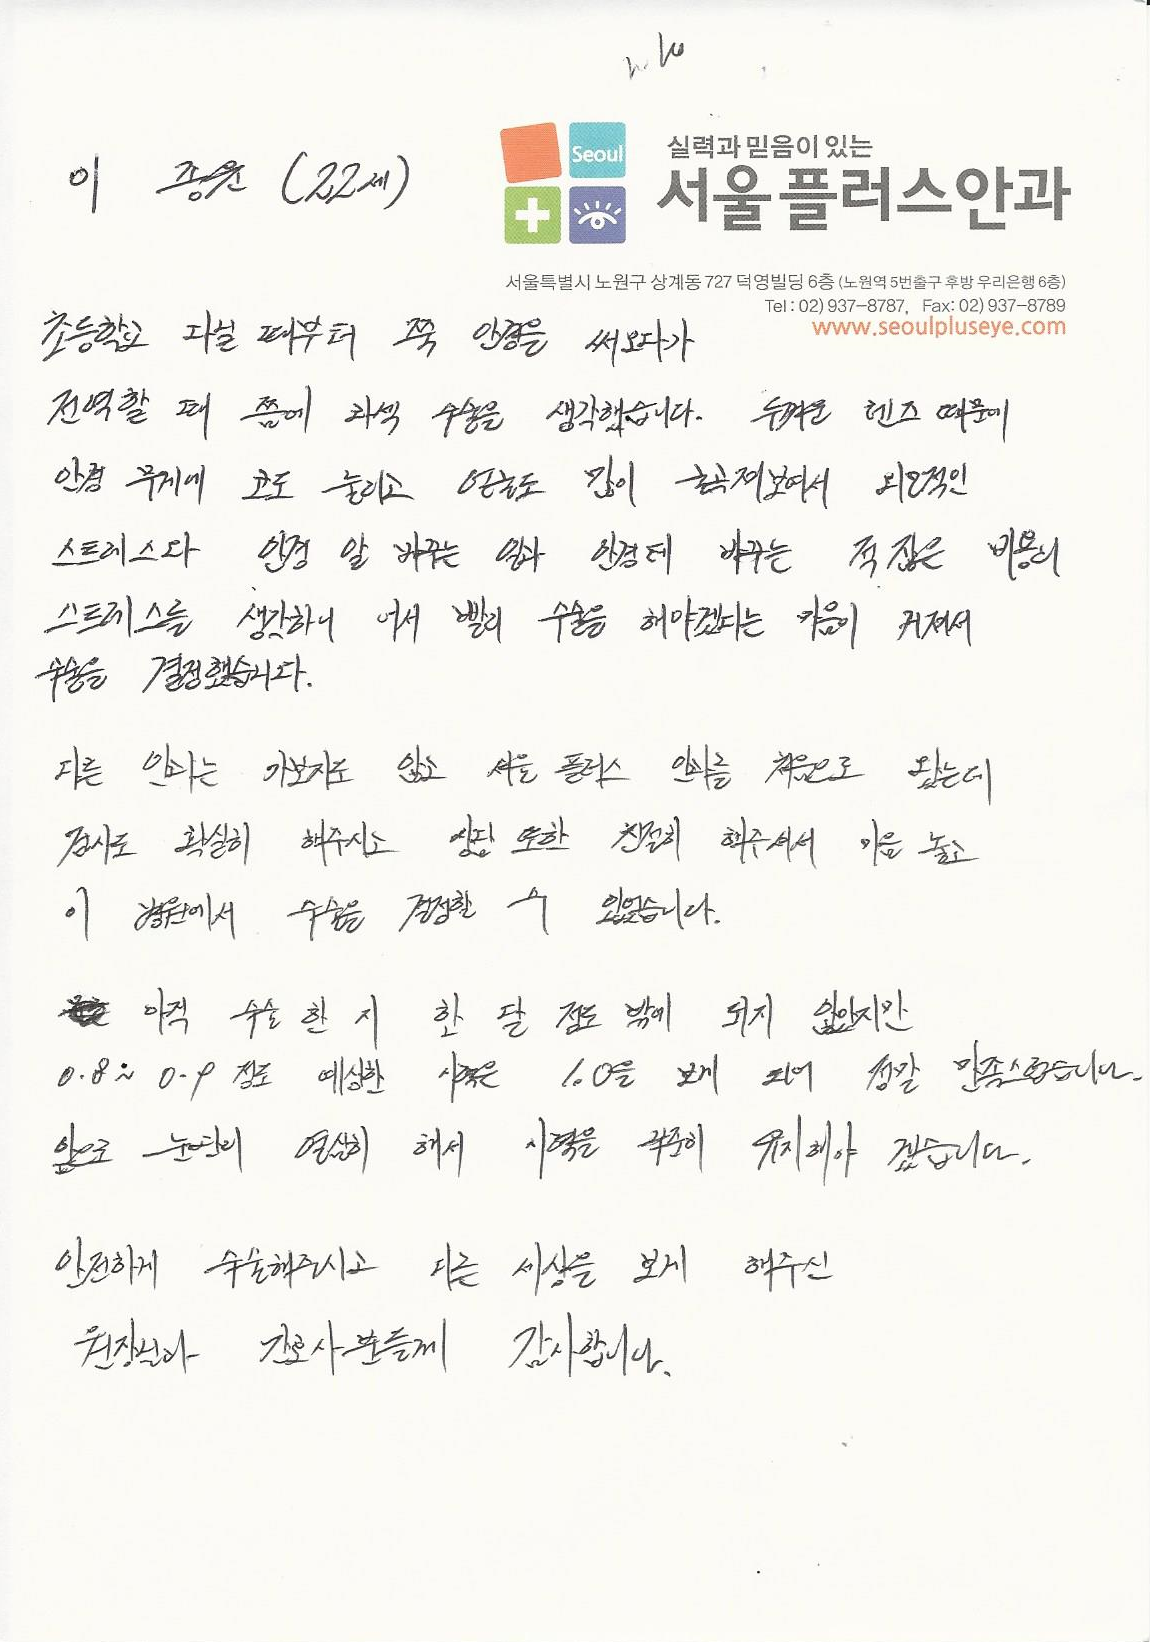 이 종원 (22세)
Seoul
실력과 믿음이 있는
서울플러스안과
서울특별시 노원구 상계동 727 덕영빌딩 6층 (노원역 5번출구 후방 우리은행 6층)
Tel : 02) 937-8787, Fax: 02) 937-8789
www.seoulpluseye.com
초등학교 다닐 때부터 쭉 안경을 써오다가
전역할 때 쯤에 라섹 수술을 생각했습니다. 두꺼운 렌즈 때문에
안경 무게에 코도 눌리고 얼굴도 많이 굴곡져보여서 외모적인
스트레스와 안경 알 바꾸는 일과 안경테 바꾸는 적잖은 비용의
스트레스를 생각하니 어서 빨리 수술을 해야겠다는 마음이 커져서
수술을 결정했습니다.
다른 안과는 가보지도 않고 서울 플러스 안과를 처음으로 왔는데
검사도 확실히 해주시고 상담 또한 친절히 해주셔서 마음 놓고
이 병원에서 수술을 결정할 수 있었습니다.
아직 수술 한 지 한 달 정도 밖에 되지 않았지만
0.8~0.9 정도 예상한 시력은 1.0을 보게 되어 정말 만족스럽습니다.
앞으로 눈관리 열심히 해서 시력을 꾸준히 유지해야 겠습니다.
안전하게 수술해주시고 다른 세상을 보게 해주신
원장님과 간호사분들께 감사합니다.